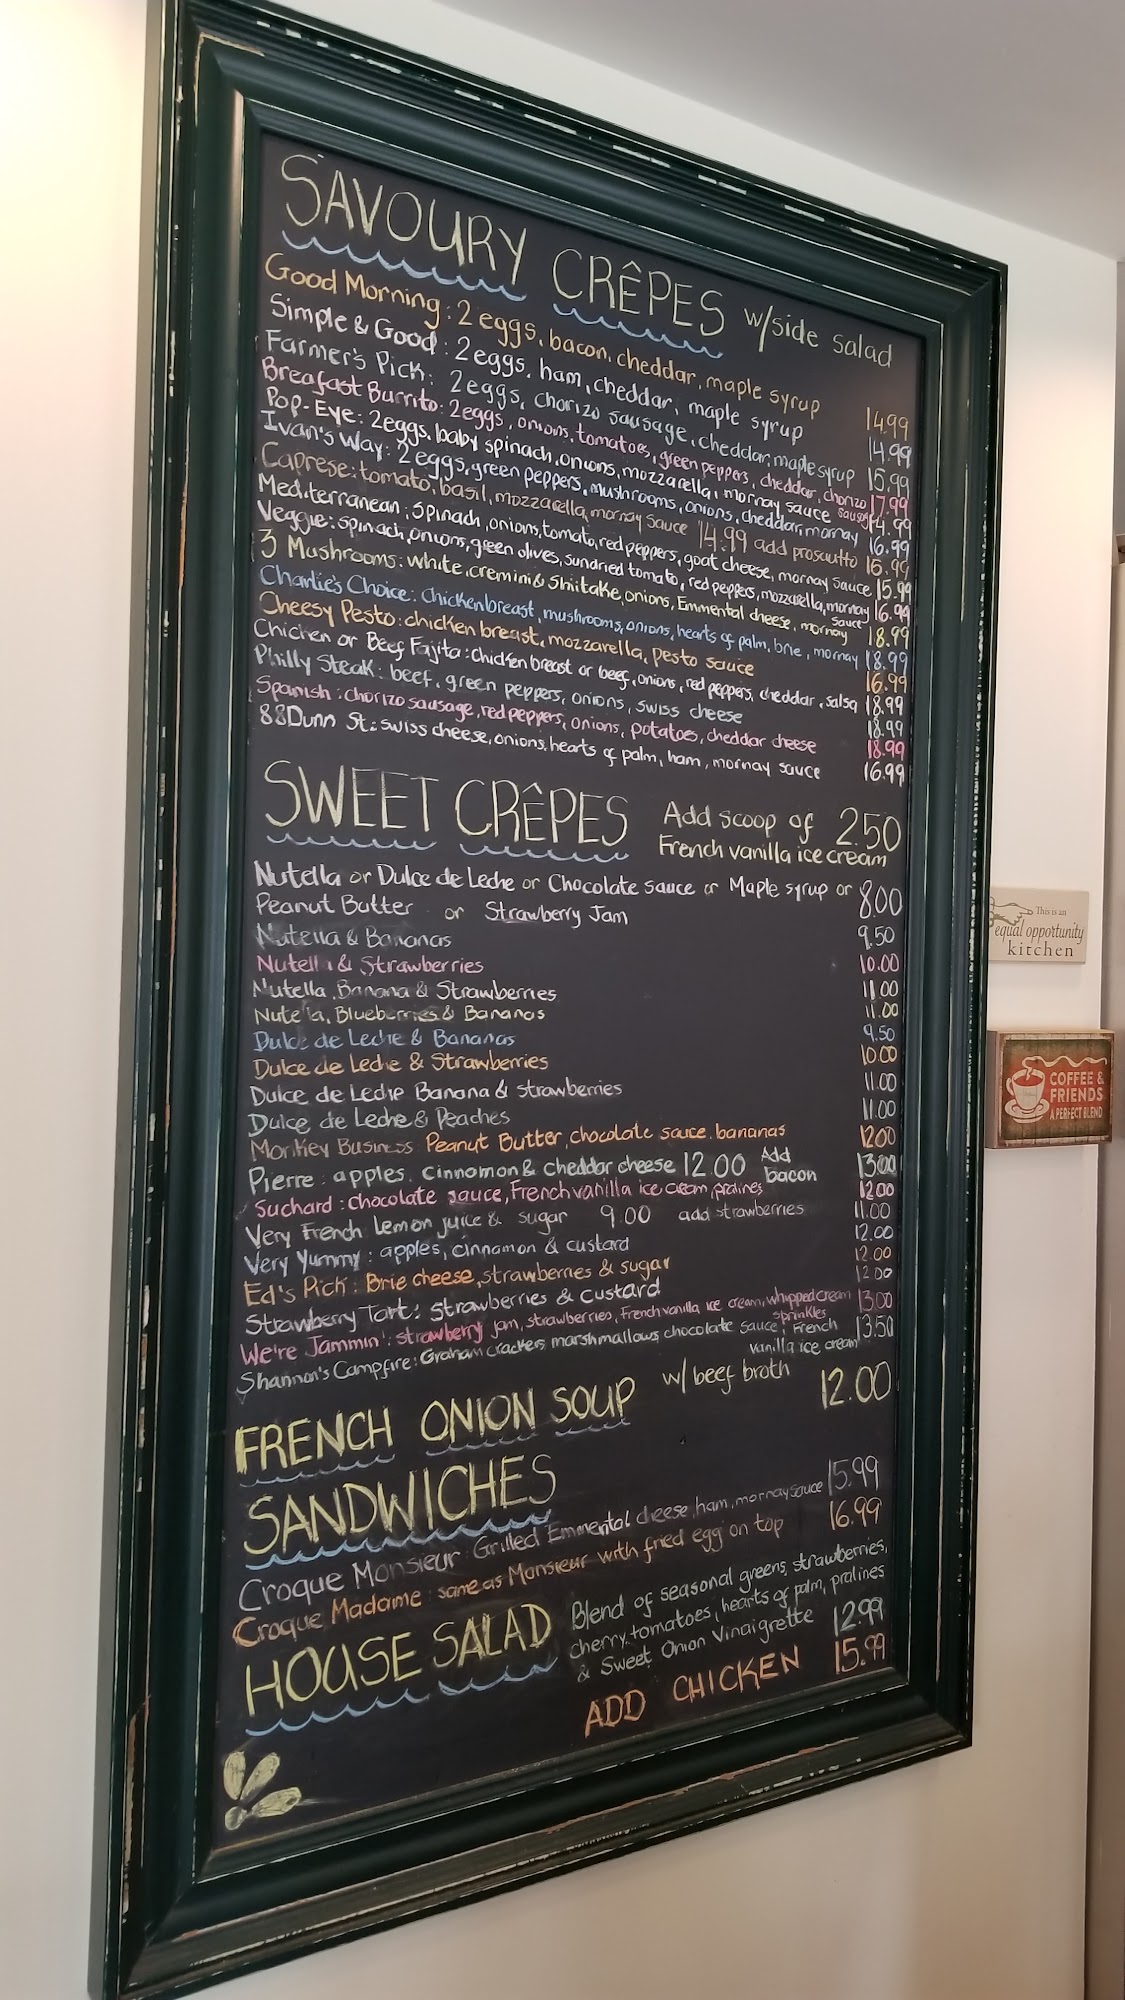 SAVOURY CRÊPES w/side salad
Good Morning: 2 eggs, bacon, cheddar, maple syrup 14.99
Simple & Good: 2 eggs, ham, cheddar, maple syrup 14.99
Farmer's Pick: 2 eggs, chorizo sausage, cheddar, maple syrup 15.99
Breafast Burrito: 2 eggs, onions, tomatoes, green peppers, cheddar, chorizo sausage 17.99
Pop-Eye: 2 eggs, baby spinach, onions, mozzarella, mornay sauce 14.99
Ivan's Way: 2 eggs, green peppers, mushrooms, onions, cheddar, mornay 16.99
Caprese: tomato, basil, mozzarella, mornay sauce 14.99 add prosciutto 16.99
Mediterranean: Spinach, onions, tomato, red peppers, goat cheese, mornay sauce 15.99
Veggie: spinach, onions, green olives, sundried tomato, red peppers, mozzarella, mornay sauce 16.99
3 Mushrooms: white, cremini & Shiitake, onions, Emmental cheese, mornay 18.99
Charlie's Choice: chicken breast, mushrooms, onions, hearts of palm, brie, mornay 18.99
Cheesy Pesto: chicken breast, mozzarella, pesto sauce 16.99
Chicken or Beef Fajita: chicken breast or beef, onions, red peppers, cheddar, salsa 18.99
Philly Steak: beef, green peppers, onions, swiss cheese 18.99
Spanish: chorizo sausage, red peppers, onions, potatoes, cheddar cheese 18.99
88 Dunn St: swiss cheese, onions, hearts of palm, ham, mornay sauce 16.99
SWEET CRÊPES Add scoop of 2.50
French vanilla ice cream
Nutella or Dulce de Leche or Chocolate sauce or Maple syrup or 8.00
Peanut Butter or Strawberry Jam
Nutella & Bananas 9.50
Nutella & Strawberries 10.00
Nutella, Banana & Strawberries 11.00
Nutella, Blueberries & Bananas 11.00
Dulce de Leche & Bananas 9.50
Dulce de Leche & Strawberries 10.00
Dulce de Leche Banana & strawberries 11.00
Dulce de Leche & Peaches 11.00
Monkey Business Peanut Butter, chocolate sauce, bananas 12.00
Pierre: apples, cinnamon & cheddar cheese 12.00 Add bacon 13.00
Suchard: chocolate sauce, French vanilla ice cream, pralines 12.00
Very French Lemon juice & sugar 9.00 add strawberries 11.00
Very Yummy: apples, cinnamon & custard 12.00
Ed's Pick: Brie cheese, strawberries & sugar 12.00
Strawberry Tart: strawberries & custard 12.00
We're Jammin': strawberry jam, strawberries, French vanilla ice cream, whipped cream sprinkles 13.00
Shannon's Campfire: Graham crackers, marshmallows, chocolate sauce, French vanilla ice cream 13.50
FRENCH ONION SOUP w/ beef broth 12.00
SANDWICHES
Croque Monsieur: Grilled Emmental cheese, ham, mornay sauce 15.99
Croque Madame: same as Monsieur with fried egg on top 16.99
HOUSE SALAD Blend of seasonal greens, strawberries,
cherry tomatoes, hearts of palm, pralines
& Sweet Onion Vinaigrette 12.99
ADD CHICKEN 15.99
This is an
equal opportunity
kitchen
COFFEE &
FRIENDS
A PERFECT BLEND